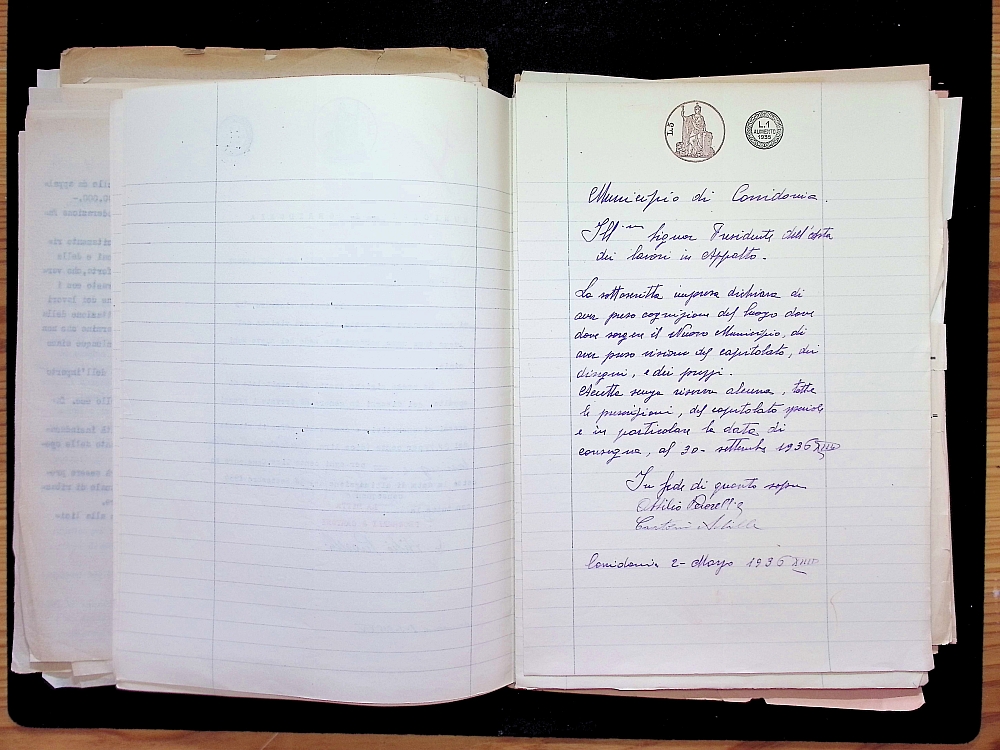 L.5
L.1
AUMENTO
1935
Municipio di Corridonia.
Ill.mo Signor Presidente dell'asta
dei lavori in Appalto.
La sottoscritta impresa dichiara di
aver preso cognizione del luogo dove
dove sorgere il Nuovo Municipio, di
aver preso visione del capitolato, dei
disegni, e dei prezzi.
Accetta senza riserva alcuna, tutte
le prescrizioni, del capitolato speciale
e in particolare la data di
consegna, al 30 - settembre 1936 XIIII
In fede di quanto sopra
Attilio
Achille
Corridonia 2 - Marzo 1936 XIIII